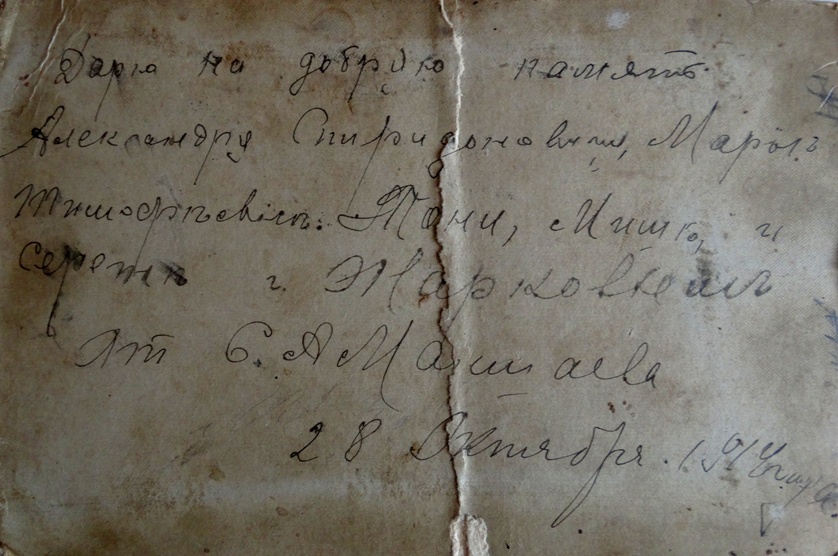 Дарю на добрую память
Александру Спиридоновичу, Марьѣ
Тимофѣевнѣ. Тони, Мишѣ, и
Сережѣ г. Жарковымъ
От С. А Мамаева
28 Октября. 1914 года